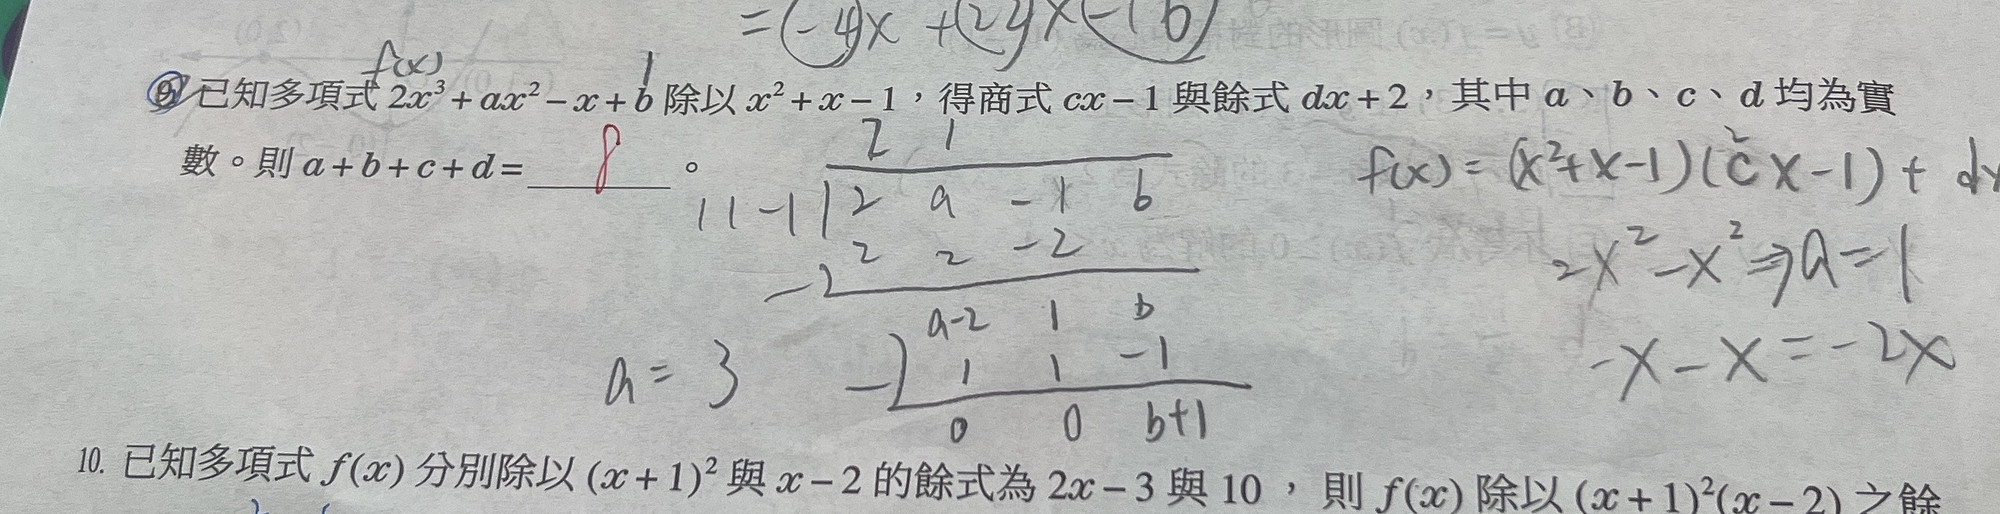 =(-4)x+(24)x(-16)
f(x)
1
9. 已知多項式 2x³+ax²-x+b 除以 x²+x-1，得商式 cx-1 與餘式 dx+2，其中 a、b、c、d 均為實
數。則 a+b+c+d= 8 。
2 1
1 1 -1 2 a -1 b
- 2 2 -2
a-2 1 b
- 1 1 -1
0 0 b+1
a=3
2
f(x)=(x²+x-1)(cx-1)+dx
2x²-x²⇒a=1
-x-x=-2x
10. 已知多項式 f(x) 分別除以 (x+1)² 與 x-2 的餘式為 2x-3 與 10，則 f(x) 除以 (x+1)²(x-2) 之餘